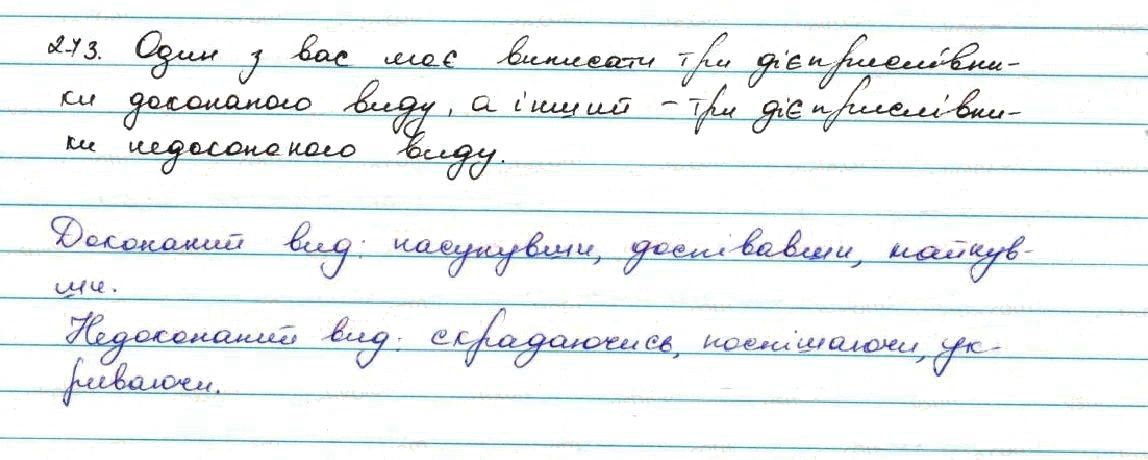 273. Один з вас має виписати три дієприслівни-
ки доконаного виду, а інший – три дієприслівни-
ки недоконаного виду.
Доконаний вид: насунувши, доспівавши, майнув-
ши.
Недоконаний вид: скрадаючись, поспішаючи, ук-
риваючи.